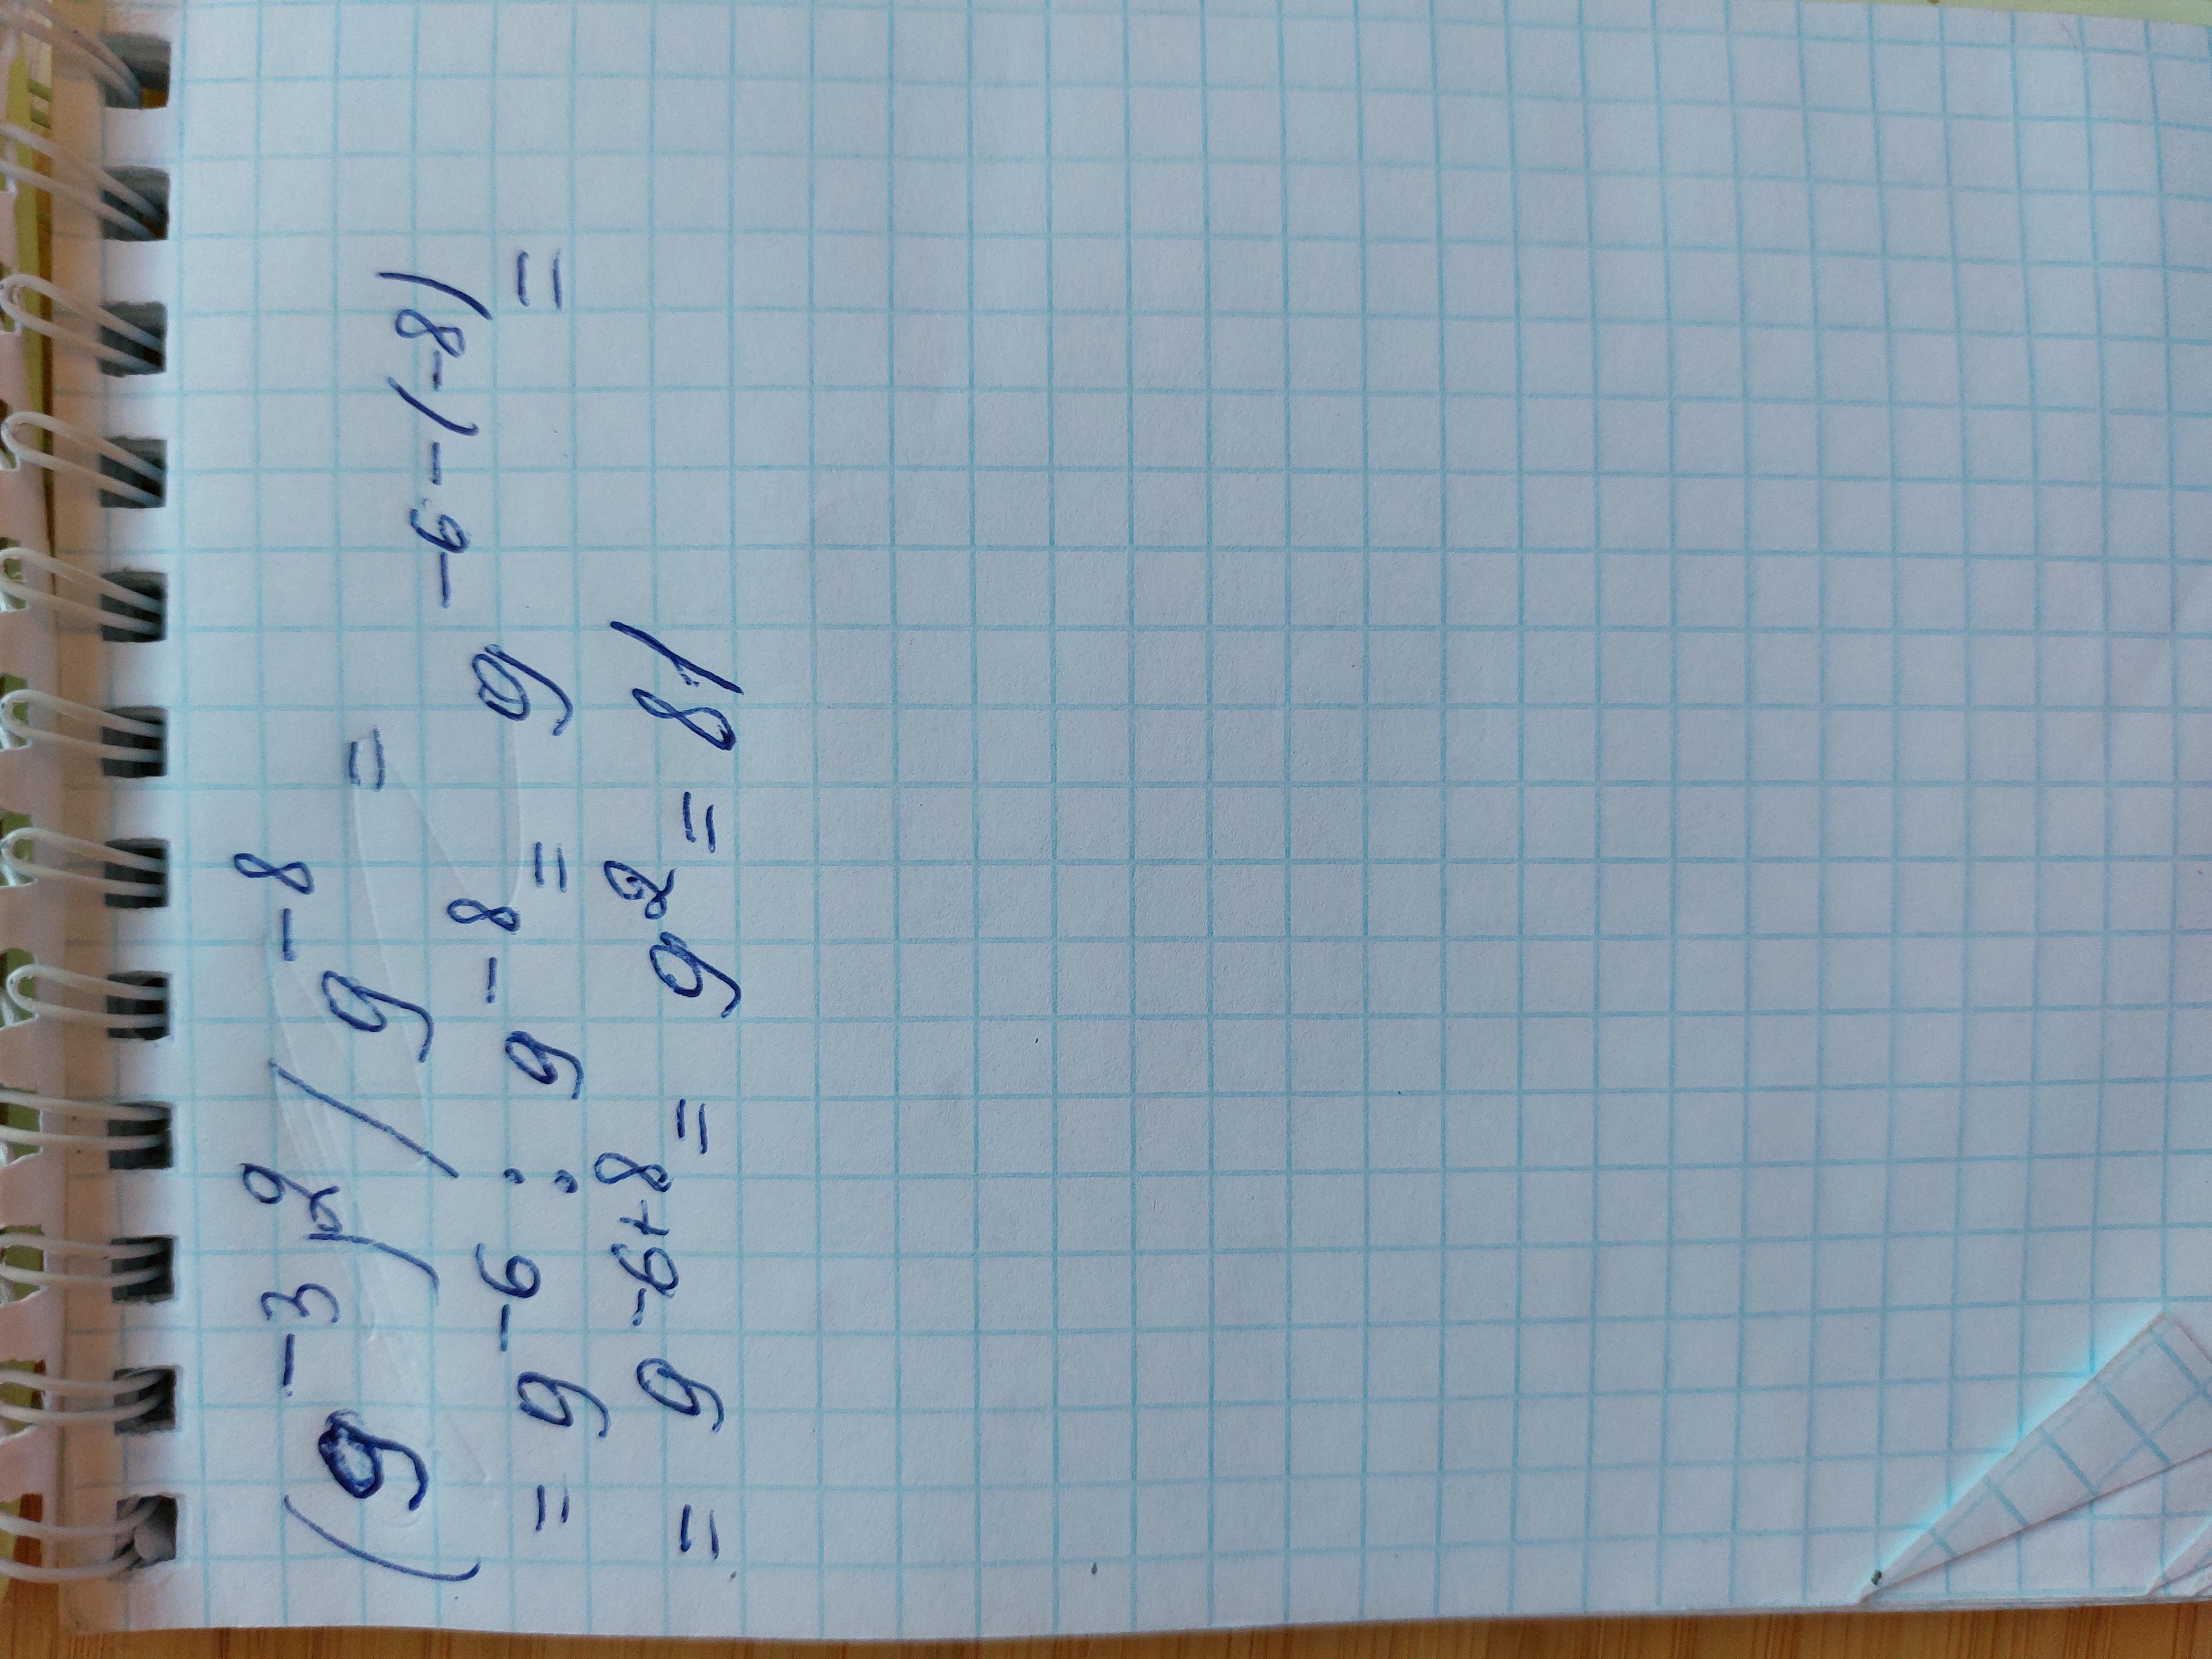 (9⁻³)² / 9⁻⁸ =
= 9⁻⁶ : 9⁻⁸ = 9⁻⁶⁻⁽⁻⁸⁾ =
= 9⁻⁶⁺⁸ = 9² = 81